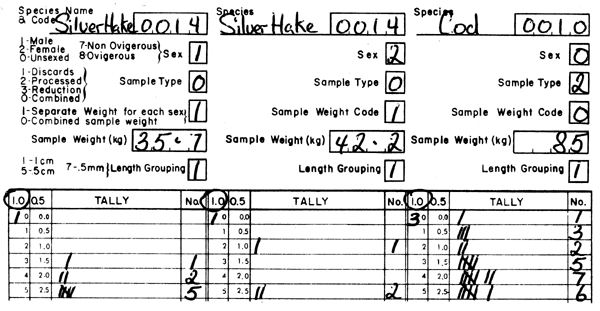 Species Name & Code Silver Hake 0014
Species Silver Hake 0014
Species Cod 0010
1-Male
2-Female 7-Non Ovigerous
0-Unsexed 8 Ovigerous } Sex 1
Sex 2
Sex 0
1-Discards
2-Processed
3-Reduction
0-Combined } Sample Type 0
Sample Type 0
Sample Type 2
1-Separate Weight for each sex
0-Combined sample weight } 1
Sample Weight Code 1
Sample Weight Code 0
Sample Weight (kg) 35.7
Sample Weight (kg) 42.2
Sample Weight (kg) 85
1-1cm
5-5cm 7-.5mm } Length Grouping 1
Length Grouping 1
Length Grouping 1
1.0 0.5 TALLY No. 1.0 0.5 TALLY No. 1.0 0.5 TALLY No.
1 0 0.0 1 0 0.0 3 0 0.0 / 1
1 0.5 1 0.5 1 0.5 /// 3
2 1.0 2 1.0 / 1 2 1.0 // 2
3 1.5 / 1 3 1.5 3 1.5 //// 5
4 2.0 // 2 4 2.0 4 2.0 //// // 7
5 2.5 //// 5 5 2.5 // 2 5 2.5 //// / 6